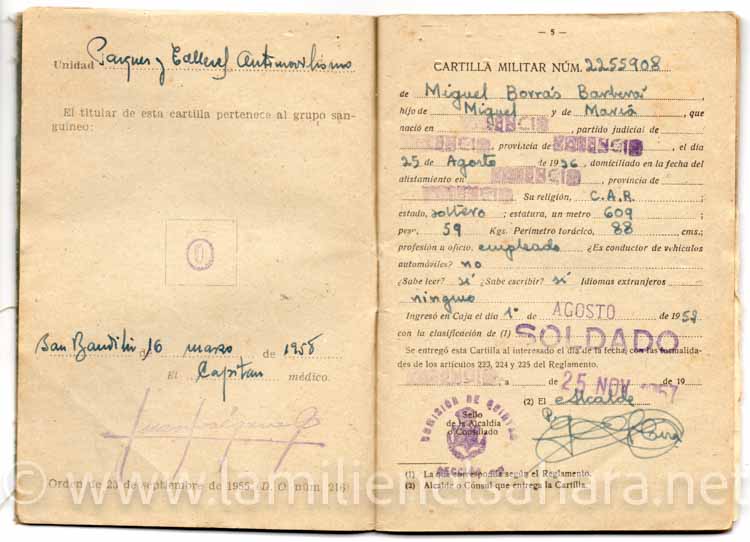 Unidad Parques y Talleres Automovilismo
El titular de esta cartilla pertenece al grupo san-
guíneo:
0
San Baudilio 16 de marzo de 1958
El Capitan médico.
Orden de 23 de septiembre de 1955 (D. O. núm. 216)
— 5 —
CARTILLA MILITAR NÚM. 2255908
de Miguel Borrás Barberá,
hijo de Miguel y de María, que
nació en VALENCIA, partido judicial de
VALENCIA, provincia de VALENCIA, el día
25 de Agosto de 1936, domiciliado en la fecha del
alistamiento en VALENCIA, provincia de
VALENCIA Su religión, C.A.R.
estado, soltero; estatura, un metro 609;
peso, 59 Kgs. Perímetro torácico, 88 cms.;
profesión u oficio, empleado ¿Es conductor de vehículos
automóviles? no
¿Sabe leer? sí ¿Sabe escribir? sí Idiomas extranjeros
ninguno
Ingresó en Caja el 1º de AGOSTO de 195
con la clasificación de (1) SOLDADO
Se entregó esta Cartilla al interesado el día de la fecha, con las formalida-
des de los artículos 223, 224 y 225 del Reglamento.
VALENCIA a 25 NOV 1957 de 19
(2) El Alcalde
COMISIÓN DE QUINTAS
Sello
de la Alcaldía
o Consulado
SECCIÓN
(1) La que corresponda según el Reglamento.
(2) Alcalde o Cónsul que entrega la Cartilla.
© www.lamilienelsahara.net